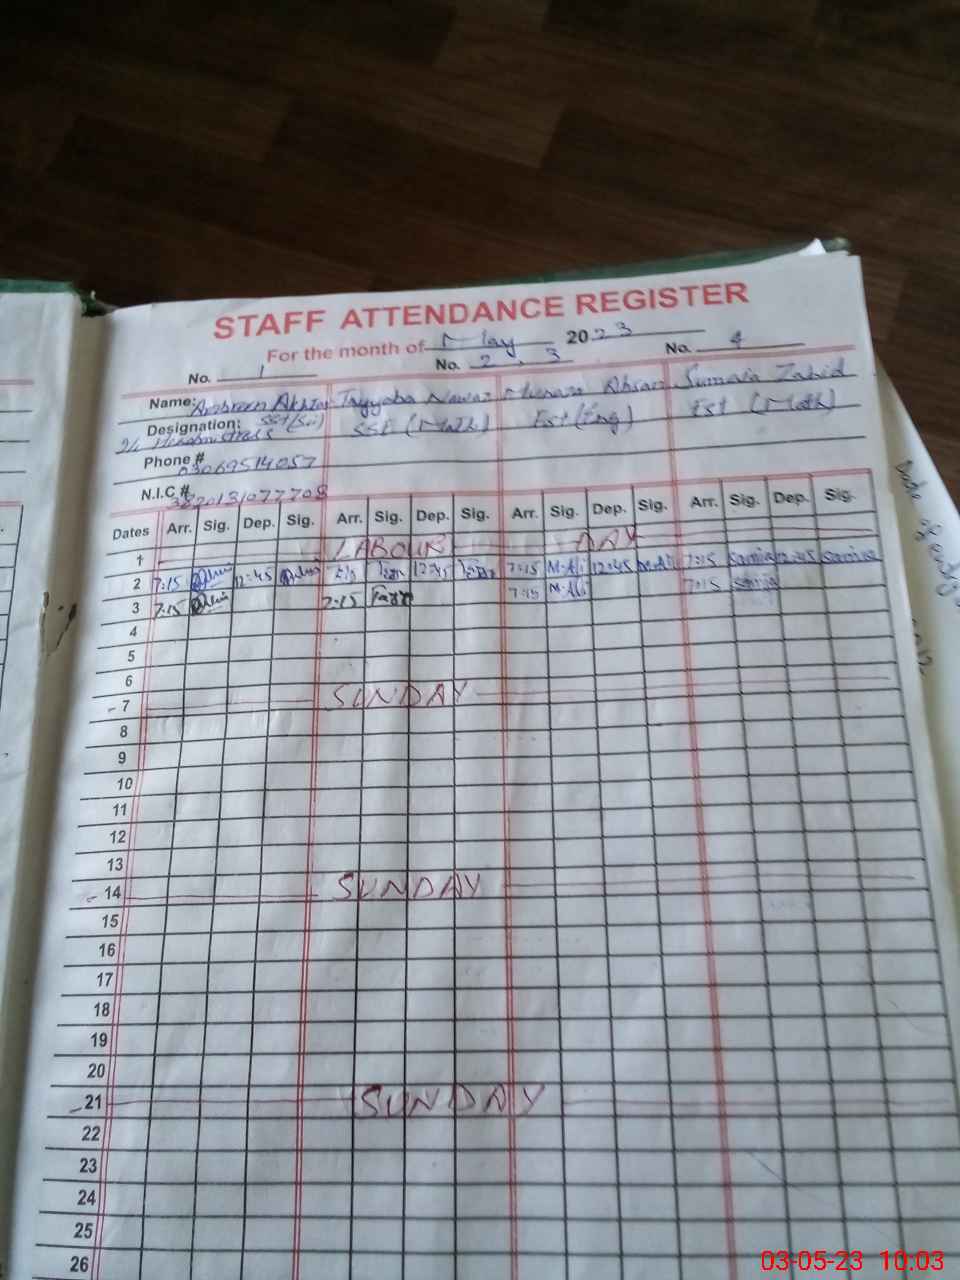 STAFF ATTENDANCE REGISTER
For the month of May 2023
No. 1 No. 2, 3 No. 4
Name: Ambreen Akhtar Tayyaba Nawaz Ahsan Sumaia Zahid
Designation: SST(Sci) SSE (Math) Est (Eng) Est (Math)
Phone # 03069514057
N.I.C #
Dates Arr. Sig. Dep. Sig. Arr. Sig. Dep. Sig. Arr. Sig. Dep. Sig. Arr. Sig. Dep. Sig.
1 LABOUR DAY
2 7:15 12:45 12:45 7:15 M.Ali 12:45 M.Ali 7:15 Samia 12:45 Samia
3 7:15 7:15 7:15 M.Ali 7:15 Samia
4
5
6
7 SUNDAY
8
9
10
11
12
13
14 SUNDAY
15
16
17
18
19
20
21 SUNDAY
22
23
24
25
26
03-05-23 10:03